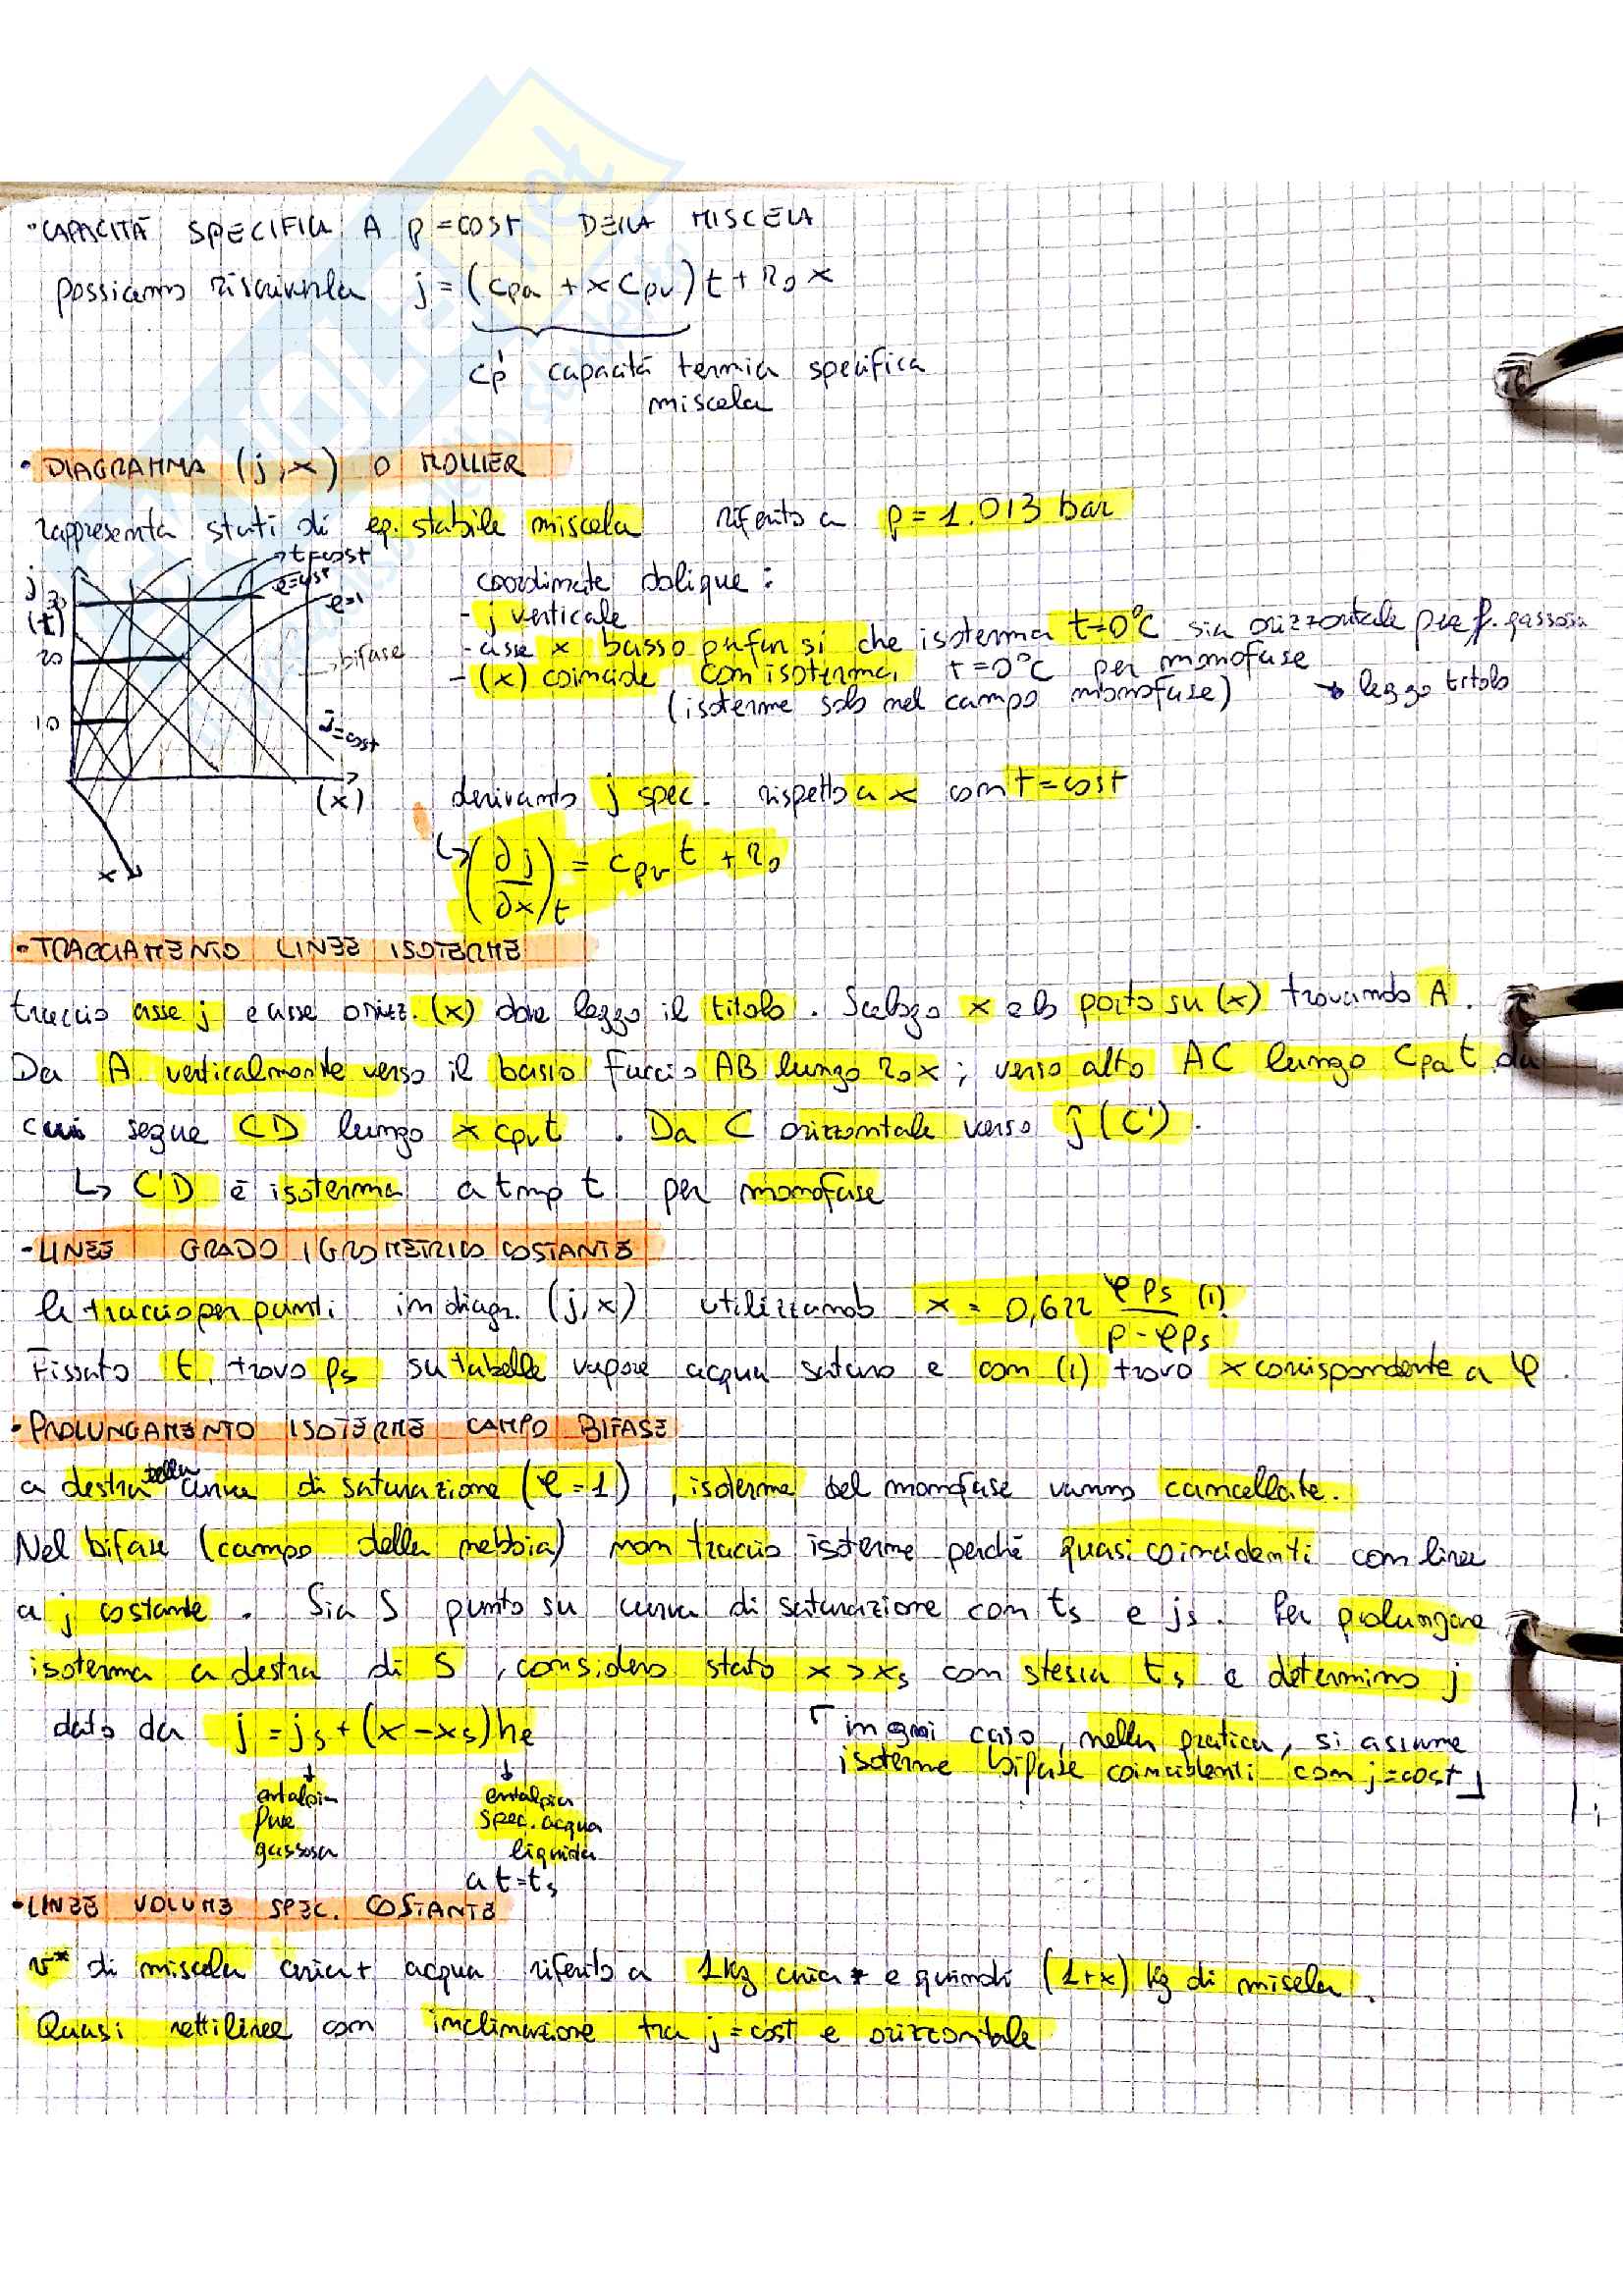 • CAPACITÀ SPECIFICA A p=COST DELLA MISCELA
possiamo riscriverla j = (cpa + x cpv) t + r₀ x
c'p capacità termica specifica
miscela
• DIAGRAMMA (j,x) O MOLLIER
rappresenta stati di eq. stabile miscela riferito a p = 1.013 bar
j
(t)
30
20
10
t=cost
φ=cost
φ=1
bifase
j=cost
(x)
x
coordinate oblique:
- j verticale
- asse x basso per far sì che isoterma t=0°C sia orizzontale per f. gassosa
- (x) coincide con isoterma t=0°C per monofase
(isoterme solo nel campo monofase) → leggo titolo
derivando j spec. rispetto a x con t=cost
↳ (∂j/∂x)t = cpv t + r₀
• TRACCIAMENTO LINEE ISOTERME
traccio asse j e asse orizz. (x) dove leggo il titolo. Scelgo x e lo porto su (x) trovando A.
Da A verticalmente verso il basso faccio AB lungo r₀x; verso alto AC lungo cpa t da
cui segue CD lungo x cpv t. Da C orizzontale verso j (C').
↳ C'D è isoterma a tmp t per monofase
- LINEE GRADO IGROMETRICO COSTANTE
le traccio per punti in diagr. (j,x) utilizzando x = 0,622 φps / (p - φps) (1)
Fissato t, trovo ps su tabelle vapore acqua saturo e con (1) trovo x corrispondente a φ.
• PROLUNGAMENTO ISOTERME CAMPO BIFASE
a destra della curva di saturazione (φ=1), isoterme del monofase vanno cancellate.
Nel bifase (campo della nebbia) non traccio isoterme perché quasi coincidenti con linee
a j costante. Sia S punto su curva di saturazione con ts e js. Per prolungare
isoterma a destra di S, considero stato x > xs con stessa ts e determino j
dato da j = js + (x - xs) he
⌈ in ogni caso, nella pratica, si assume
isoterme bifase coincidenti con j=cost ⌋
entalpia
fase
gassosa
entalpia
spec. acqua
liquida
a t=ts
• LINEE VOLUME SPEC. COSTANTE
v* di miscela aria + acqua riferito a 1kg aria e quindi (1+x) kg di miscela.
Quasi rettilinee con inclinazione tra j=cost e orizzontale